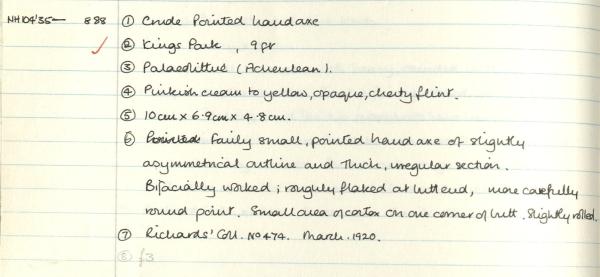 NH104'35— 888 ① Crude Pointed handaxe
② Kings Park, 9pr
③ Palaeolithic (Acheulean).
④ Pinkish cream to yellow, opaque, cherty flint.
⑤ 10cm x 6.9cm x 4.8cm.
⑥ Fairly small, pointed handaxe of slightly
asymmetrical outline and thick, irregular section.
Bifacially worked; roughly flaked at butt end, more carefully
round point. Small area of cortex on one corner of butt. Slightly rolled.
⑦ Richards' Coll. No 474. March. 1920.
⑧ £3